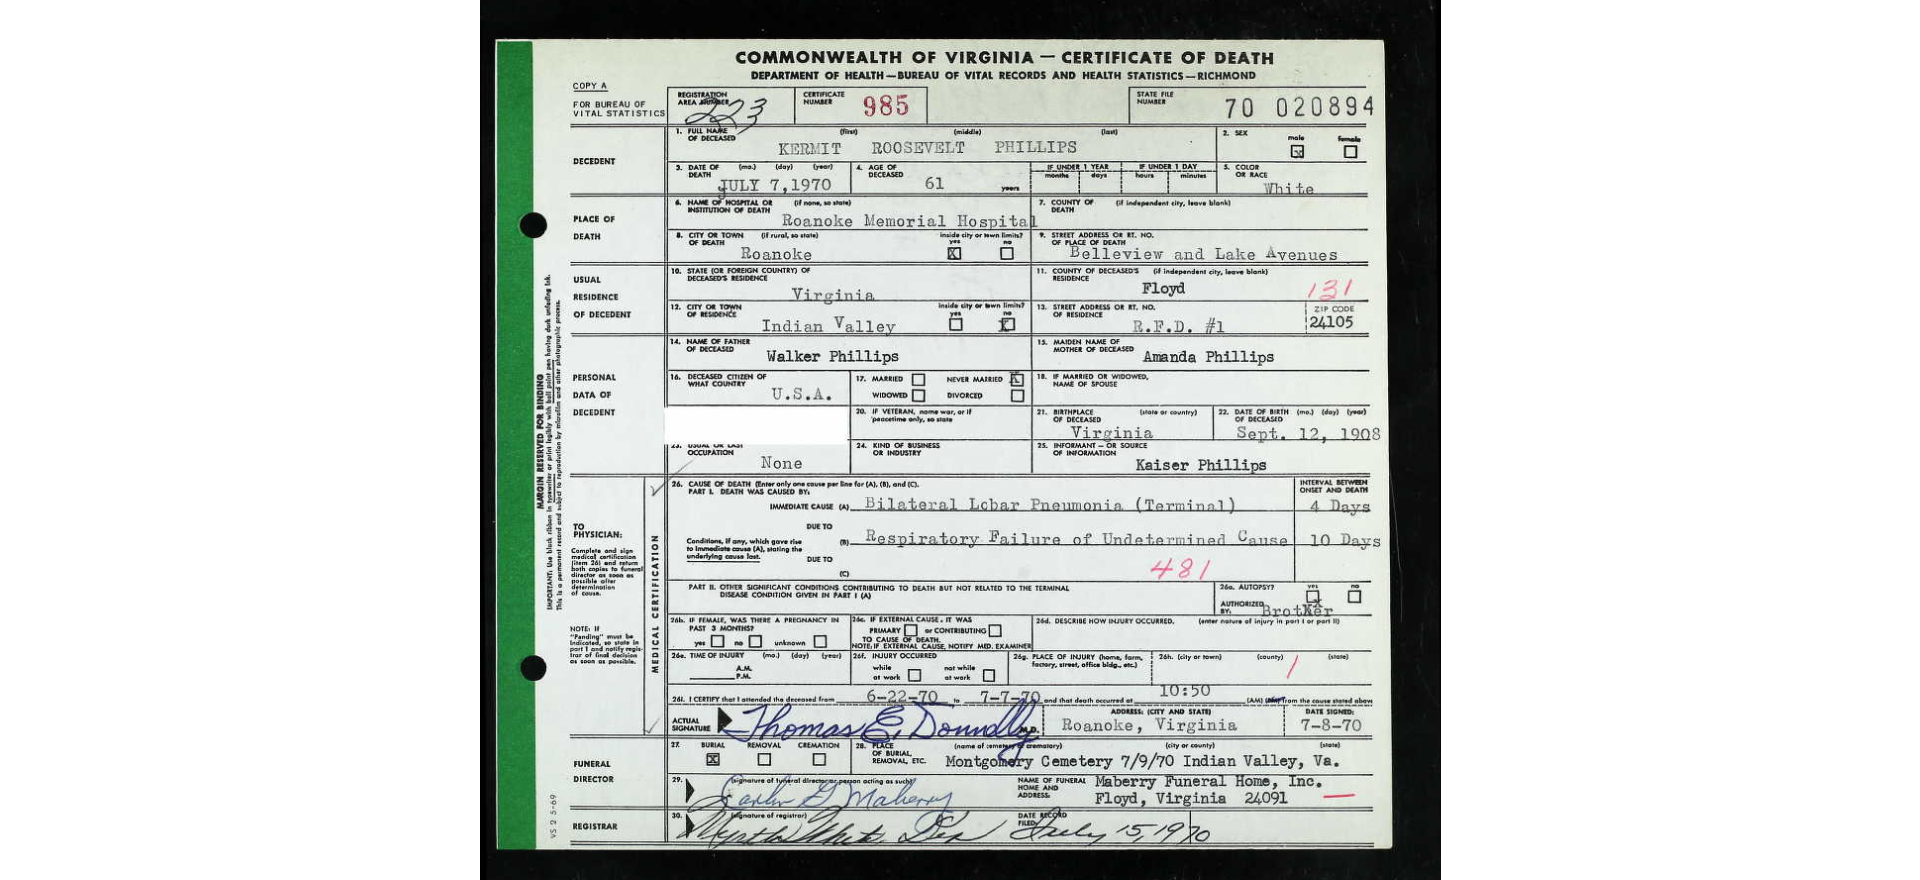 COMMONWEALTH OF VIRGINIA — CERTIFICATE OF DEATH
DEPARTMENT OF HEALTH—BUREAU OF VITAL RECORDS AND HEALTH STATISTICS—RICHMOND
COPY A
FOR BUREAU OF VITAL STATISTICS
REGISTRATION AREA NUMBER 223
CERTIFICATE NUMBER 985
STATE FILE NUMBER 70 020894
DECEDENT
1. FULL NAME OF DECEASED (first) (middle) (last)
KERMIT ROOSEVELT PHILLIPS
2. SEX male X female
3. DATE OF DEATH (mo.) (day) (year)
JULY 7,1970
4. AGE OF DECEASED 61 years
IF UNDER 1 YEAR months days
IF UNDER 1 DAY hours minutes
5. COLOR OR RACE White
PLACE OF DEATH
6. NAME OF HOSPITAL OR INSTITUTION OF DEATH (if none, so state)
Roanoke Memorial Hospital
7. COUNTY OF DEATH (if independent city, leave blank)
8. CITY OR TOWN OF DEATH (if rural, so state)
Roanoke
inside city or town limits? yes X no
9. STREET ADDRESS OR RT. NO. OF PLACE OF DEATH
Belleview and Lake Avenues
USUAL RESIDENCE OF DECEDENT
10. STATE (OR FOREIGN COUNTRY) OF DECEASED'S RESIDENCE
Virginia
11. COUNTY OF DECEASED'S RESIDENCE (if independent city, leave blank)
Floyd 131
12. CITY OR TOWN OF RESIDENCE
Indian Valley
inside city or town limits? yes no X
13. STREET ADDRESS OR RT. NO. OF RESIDENCE
R.F.D. #1
ZIP CODE 24105
PERSONAL DATA OF DECEDENT
14. NAME OF FATHER OF DECEASED
Walker Phillips
15. MAIDEN NAME OF MOTHER OF DECEASED Amanda Phillips
16. DECEASED CITIZEN OF WHAT COUNTRY
U.S.A.
17. MARRIED NEVER MARRIED X
WIDOWED DIVORCED
18. IF MARRIED OR WIDOWED, NAME OF SPOUSE
20. IF VETERAN, name war, or if peacetime only, so state
21. BIRTHPLACE OF DECEASED (state or country)
Virginia
22. DATE OF BIRTH OF DECEASED (mo.) (day) (year)
Sept. 12, 1908
23. USUAL OR LAST OCCUPATION
None
24. KIND OF BUSINESS OR INDUSTRY
25. INFORMANT — OR SOURCE OF INFORMATION
Kaiser Phillips
MARGIN RESERVED FOR BINDING
IMPORTANT: Use black ribbon in typewriter or print legibly with ball point pen having dark unfading ink.
This is a permanent record and subject to reproduction by microfilm and other photographic process.
TO PHYSICIAN:
Complete and sign medical certification (item 26) and return both copies to funeral director as soon as possible after determination of cause.
NOTE: If "Pending" must be indicated, so state in part I and notify registrar of final decision as soon as possible.
MEDICAL CERTIFICATION
26. CAUSE OF DEATH (Enter only one cause per line for (A), (B), and (C).
PART I. DEATH WAS CAUSED BY:
INTERVAL BETWEEN ONSET AND DEATH
IMMEDIATE CAUSE (A) Bilateral Lobar Pneumonia (Terminal) 4 Days
DUE TO
Conditions, if any, which gave rise to immediate cause (A), stating the underlying cause last.
(B) Respiratory Failure of Undetermined Cause 10 Days
DUE TO
(C) 481
PART II. OTHER SIGNIFICANT CONDITIONS CONTRIBUTING TO DEATH BUT NOT RELATED TO THE TERMINAL DISEASE CONDITION GIVEN IN PART I (A)
26a. AUTOPSY? yes X no
AUTHORIZED BY: Brother
26b. IF FEMALE, WAS THERE A PREGNANCY IN PAST 3 MONTHS?
yes no unknown
26c. IF EXTERNAL CAUSE, IT WAS
PRIMARY or CONTRIBUTING
TO CAUSE OF DEATH.
NOTE: IF EXTERNAL CAUSE, NOTIFY MED. EXAMINER
26d. DESCRIBE HOW INJURY OCCURRED. (enter nature of injury in part I or part II)
26e. TIME OF INJURY (mo.) (day) (year)
A.M.
P.M.
26f. INJURY OCCURRED
while at work not while at work
26g. PLACE OF INJURY (home, farm, factory, street, office bldg., etc.)
26h. (city or town) (county) (state)
26i. I CERTIFY that I attended the deceased from 6-22-70 to 7-7-70 and that death occurred at 10:50 (AM) from the cause stated above
ACTUAL SIGNATURE Thomas E. Donnally M.D.
ADDRESS: (CITY AND STATE)
Roanoke, Virginia
DATE SIGNED:
7-8-70
FUNERAL DIRECTOR
27. BURIAL X REMOVAL CREMATION
28. PLACE OF BURIAL, REMOVAL, ETC. (name of cemetery or crematory) (city or county) (state)
Montgomery Cemetery 7/9/70 Indian Valley, Va.
29. (signature of funeral director or person acting as such)
Maberry
NAME OF FUNERAL HOME AND ADDRESS: Maberry Funeral Home, Inc.
Floyd, Virginia 24091
REGISTRAR
30. (signature of registrar)
DATE RECORD FILED: July 15, 1970
VS 2 5-69